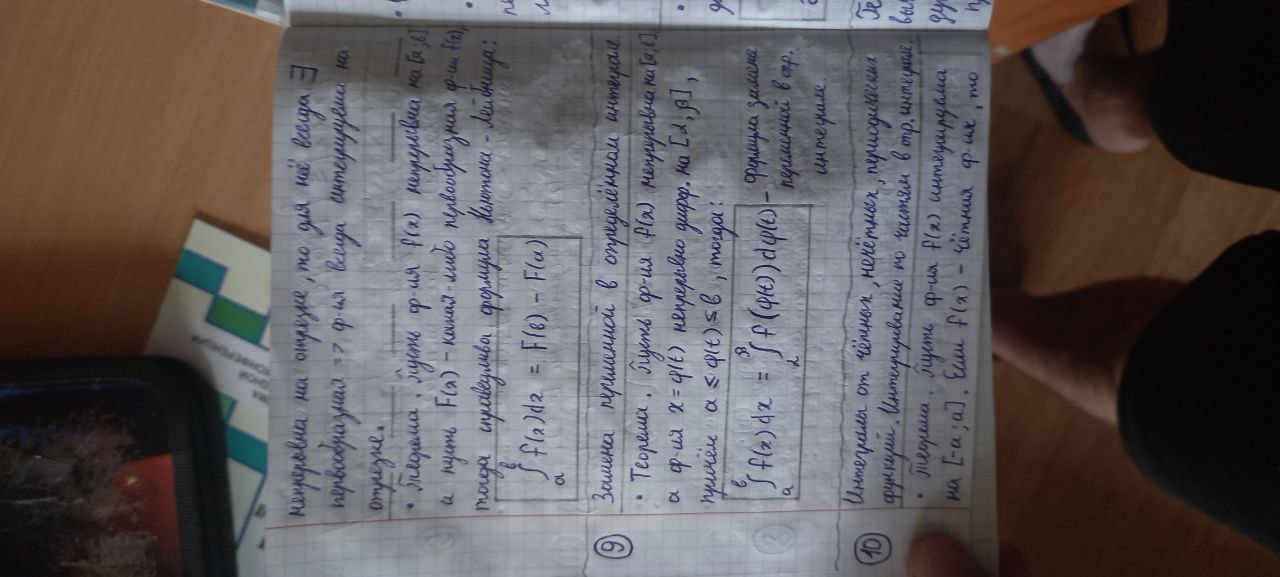 непрерывна на отрезке, то для неё всегда ∃
первообразная => ф-ия всегда интегрируема на
отрезке.
• Теорема. Пусть ф-ия f(x) непрерывна на [a;в]
и пусть F(x) - какая-либо первообразная ф-ии f(x),
тогда справедлива формула Ньютона - Лейбница:
∫ₐᵇ f(x)dx = F(в) - F(a)
⑨ Замена переменной в определённом интеграле.
• Теорема. Пусть ф-ия f(x) непрерывна на [a,в],
а ф-ия x = φ(t) непрерывно дифф. на [α, β],
причём a ≤ φ(t) ≤ в, тогда:
∫ₐᵇ f(x)dx = ∫ f(φ(t))dφ(t) - формула замена
переменной в опр.
интеграле
⑩ Интегралы от чётных, нечётных, периодических
функций. Интегрирование по частям в опр. интеграле.
• Теорема. Пусть ф-ия f(x) интегрируема
на [-a; a]. Если f(x) - чётная ф-ия, то